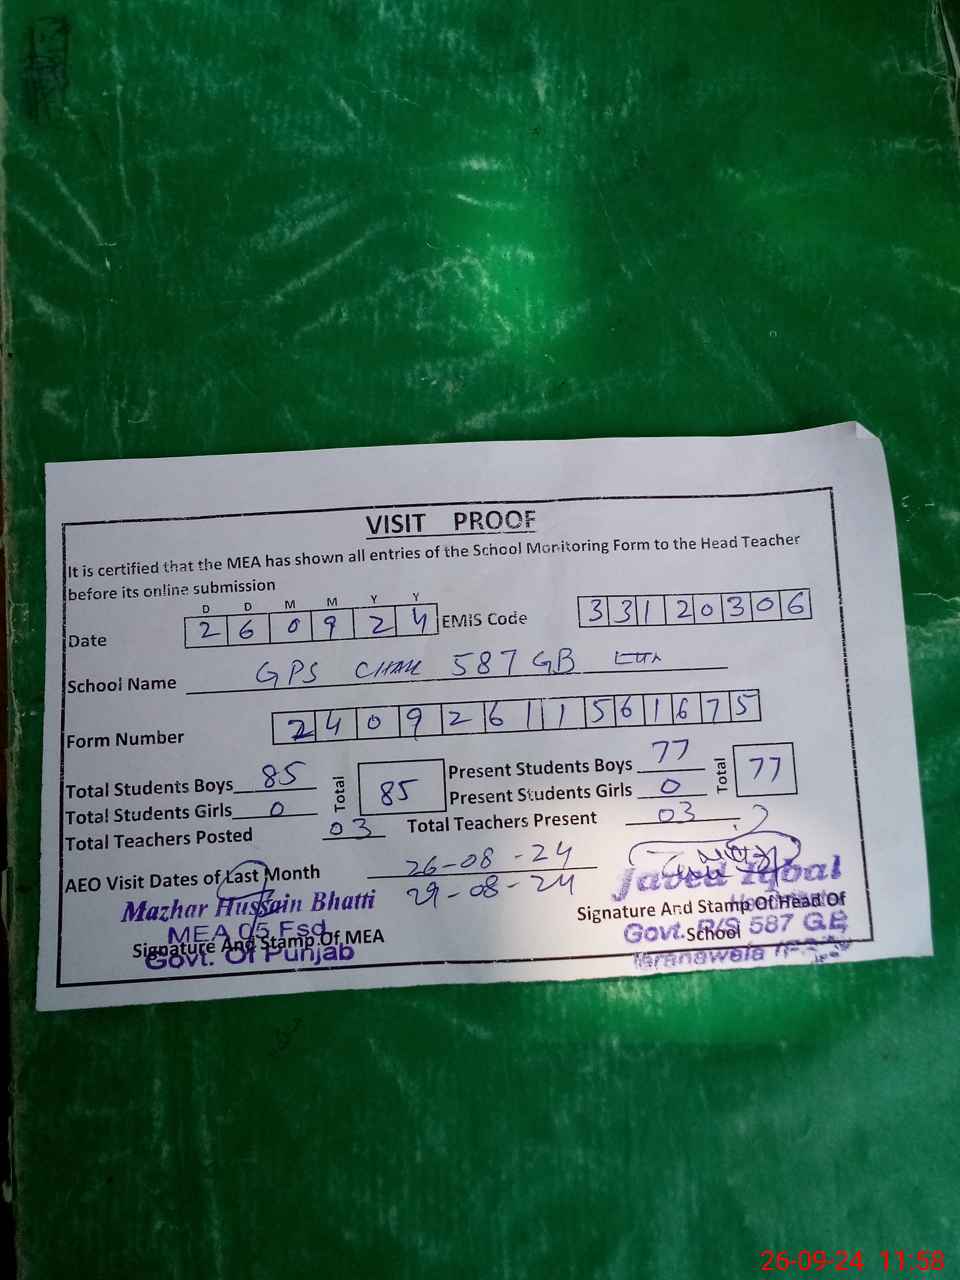 VISIT PROOF
It is certified that the MEA has shown all entries of the School Monitoring Form to the Head Teacher
before its online submission
D D M M Y Y
Date 2 6 0 9 2 4 EMIS Code 3 3 1 2 0 3 0 6
School Name GPS CHAK 587 GB
Form Number 2 4 0 9 2 6 1 1 5 6 1 6 7 5
Total Students Boys 85 Total 85 Present Students Boys 77 Total 77
Total Students Girls 0 Present Students Girls 0
Total Teachers Posted 03 Total Teachers Present 03
AEO Visit Dates of Last Month 26-08-24
29-08-24
Mazhar Hussain Bhatti
MEA 05 Fsd
Govt. Of Punjab
Signature And Stamp Of MEA
Javed Iqbal
Govt. P/S 587 G.B
Signature And Stamp Of Head Of
School
26-09-24 11:58